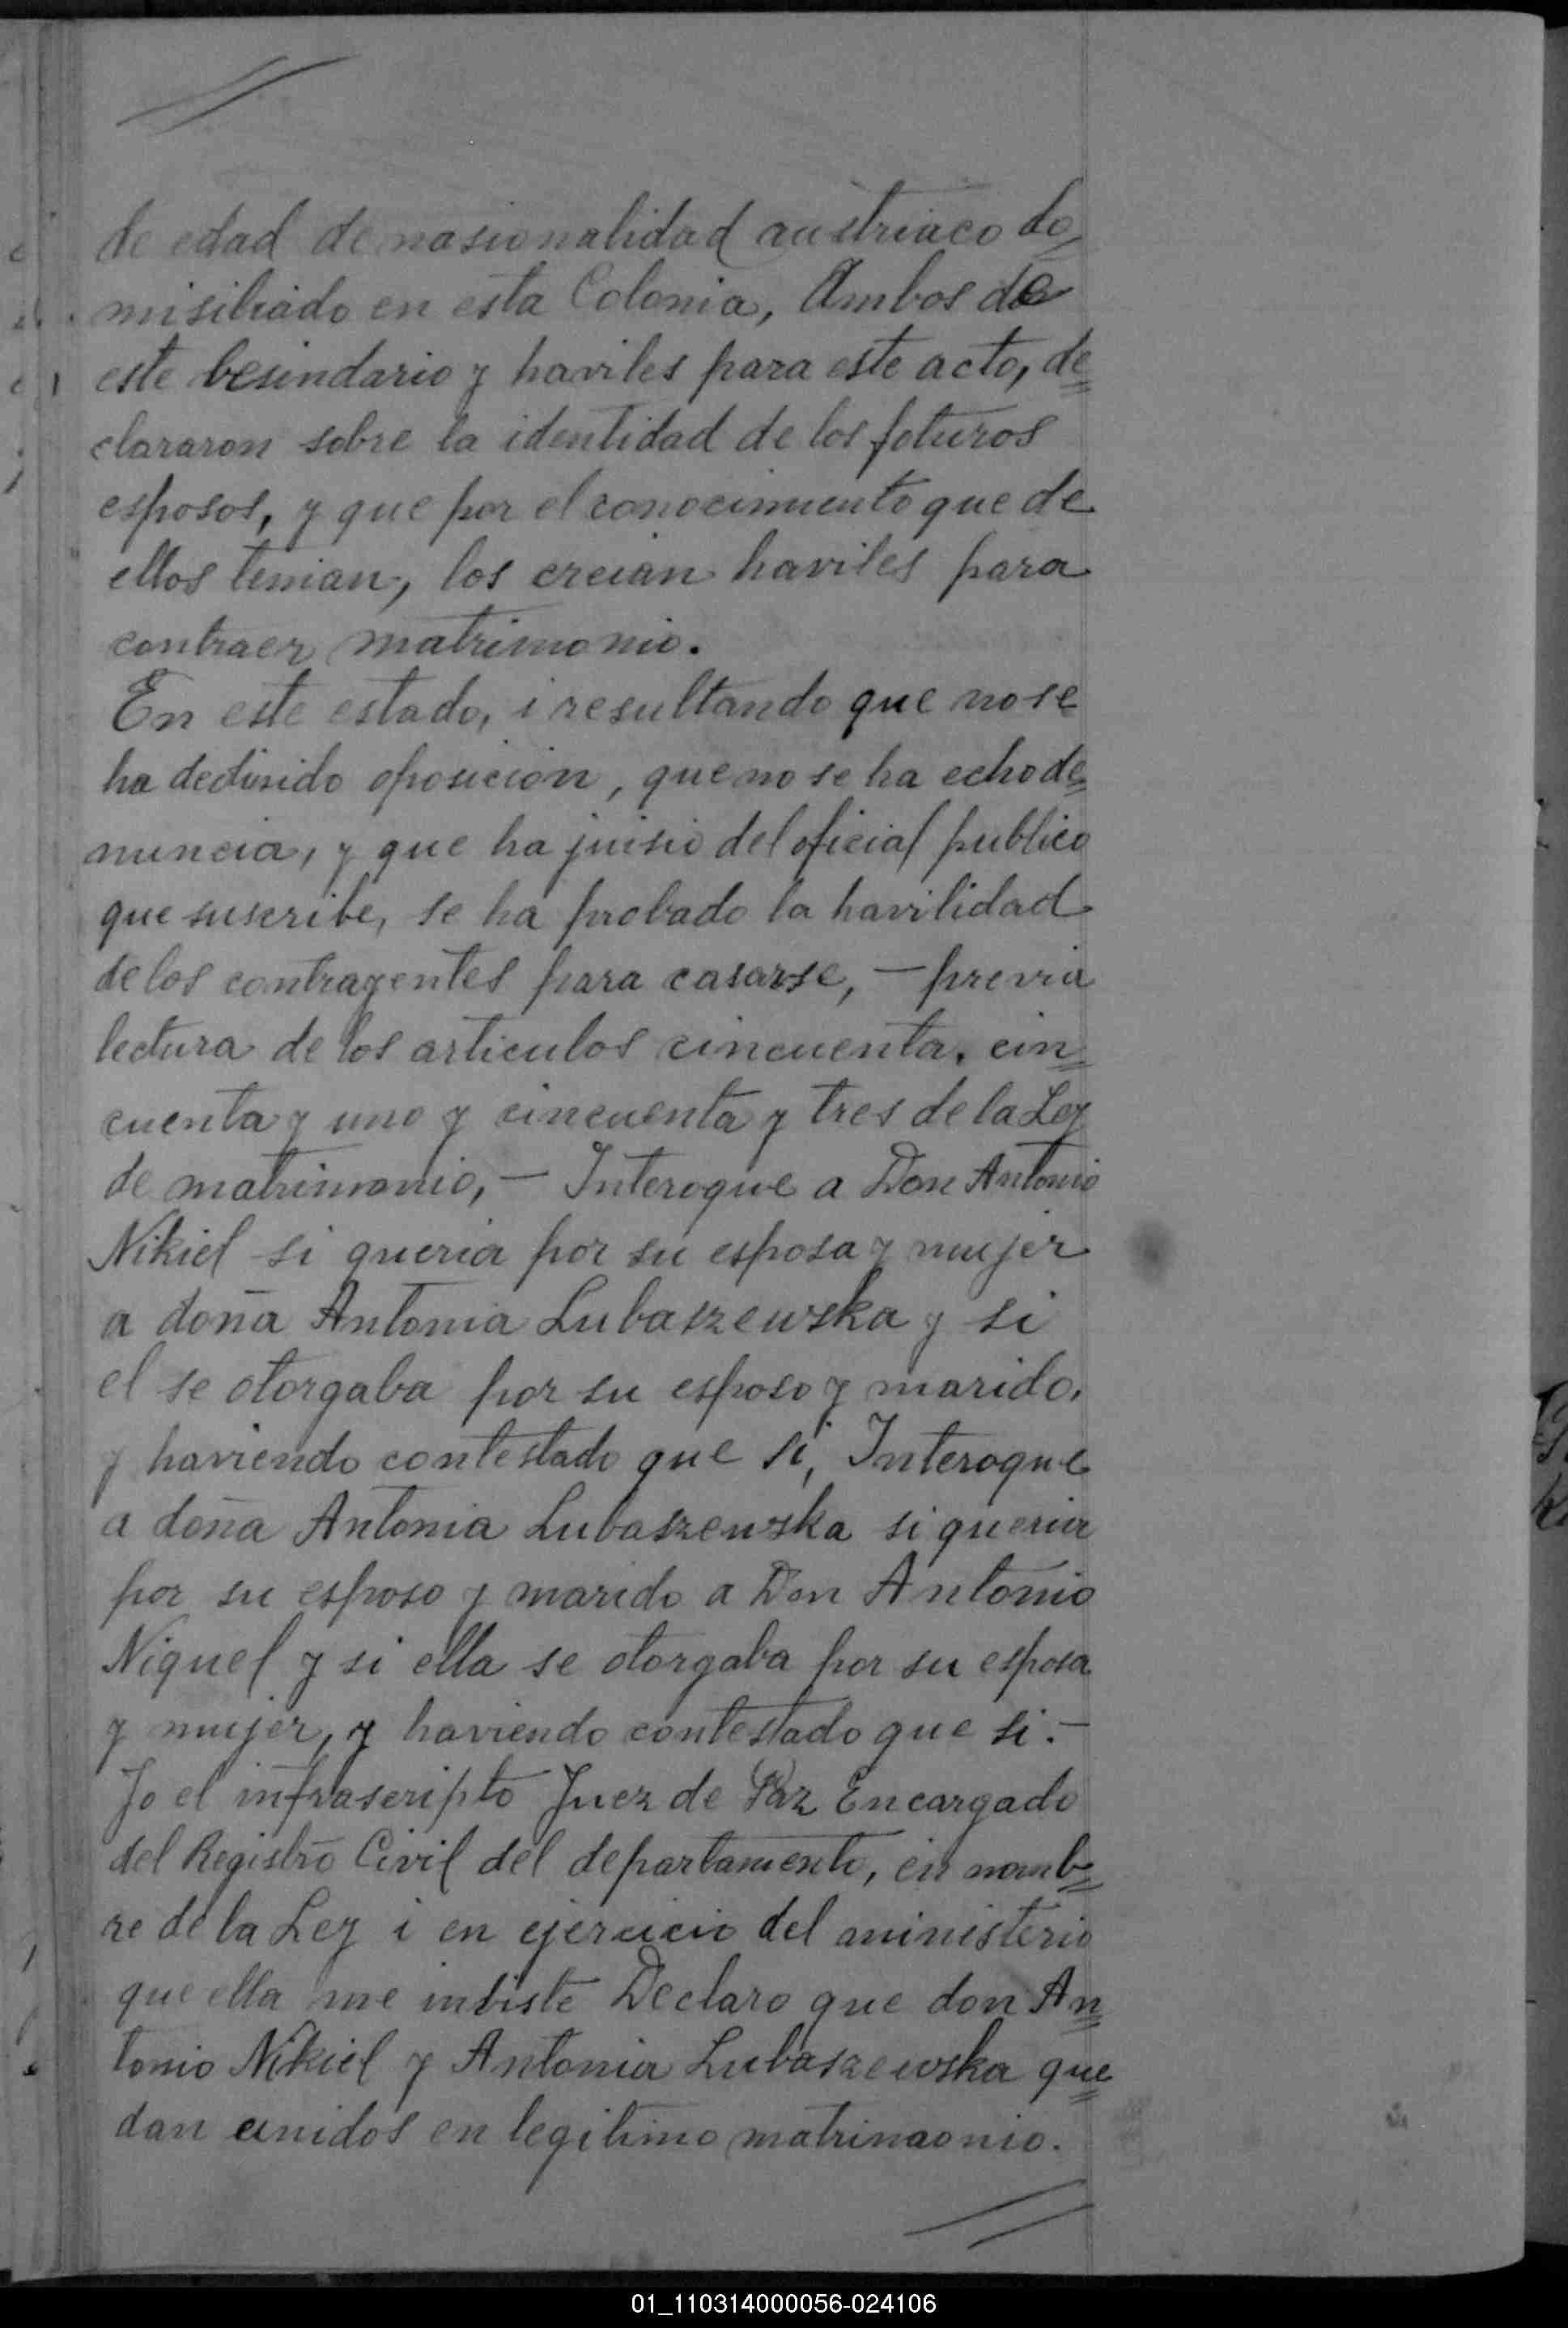 de edad de nasionalidad austriaco do=
misiliado en esta Colonia, Ambos de
este besindario y haviles para este acto, de=
clararon sobre la identidad de los foturos
esposos, y que por el conocimiento que de
ellos tenian, los creian haviles para
contraer matrimonio.
En este estado, i resultando que no se
ha dedusido oposición, que no se ha echo de=
nuncia, y que ha juisio del oficial publico
que suscribe, se ha probado la havilidad
de los contrayentes para casarse, — previa
lectura de los articulos cincuenta, cin=
cuenta y uno y cincuenta y tres de la Ley
de matrimonio, — Interogue a Don Antonio
Nikiel si queria por su esposa y mujer
a doña Antonia Lubaszewska y si
el se otorgaba por su esposo y marido,
y haviendo contestado que si, Interogue
a doña Antonia Lubaszewska si queria
por su esposo y marido a Don Antonio
Niquel y si ella se otorgaba por su esposa
y mujer, y haviendo contestado que si. —
Jo el infrascripto Juez de Paz Encargado
del Registro Civil del departamento, en nomb=
re de la Ley i en ejercicio del ministerio
que ella me inbiste Declaro que don An=
tonio Nikiel y Antonia Lubaszewska que=
dan unidos en legitimo matrimaonio.
01_110314000056-024106